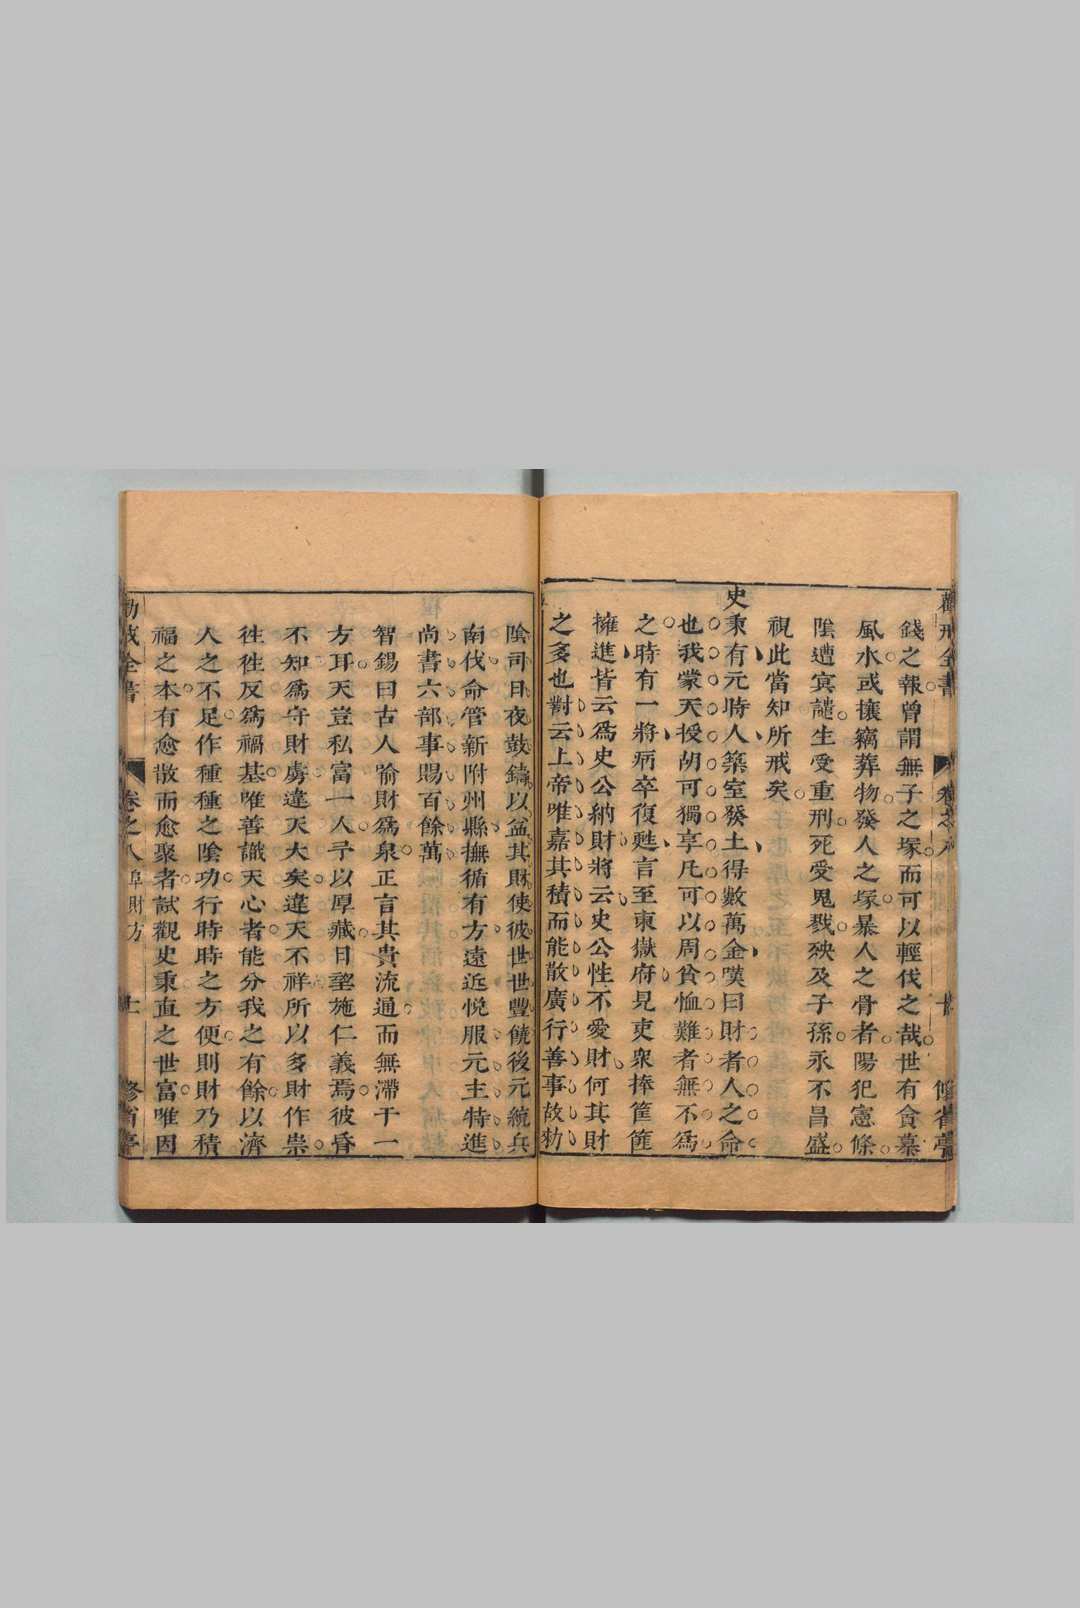 錢之報曾謂無子之塚而可以輕伐之哉世有貪墓
風水或攘竊葬物發人之塚暴人之骨者陽犯憲條
陰遭冥譴生受重刑死受鬼戮殃及子孫永不昌盛
視此當知所戒矣
史秉有元時人築室發土得數萬金嘆曰財者人之命
也我蒙天授胡可獨享凡可以周貧恤難者無不爲
之時有一將病卒復甦言至東嶽府見吏衆捧筐篚
擁進皆云爲史公納財將云史公性不愛財何其財
之多也對云上帝唯嘉其積而能散廣行善事故勑
陰司日夜鼓鑄以益其財使彼世世豐饒後元統兵
南伐命管新附州縣撫循有方遠近悅服元主特進
尚書六部事賜百餘萬
智錫曰古人喻財爲泉正言其貴流通而無滯于一
方耳天豈私富一人予以厚藏日望施仁義焉彼昏
不知爲守財虜違天大矣違天不祥所以多財作祟
徃徃反爲禍基唯善識天心者能分我之有餘以濟
人之不足作種種之陰功行時時之方便則財乃積
福之本有愈散而愈聚者試觀史秉直之世富唯因
勸戒全書
卷之八
阜財方
十
修省亭